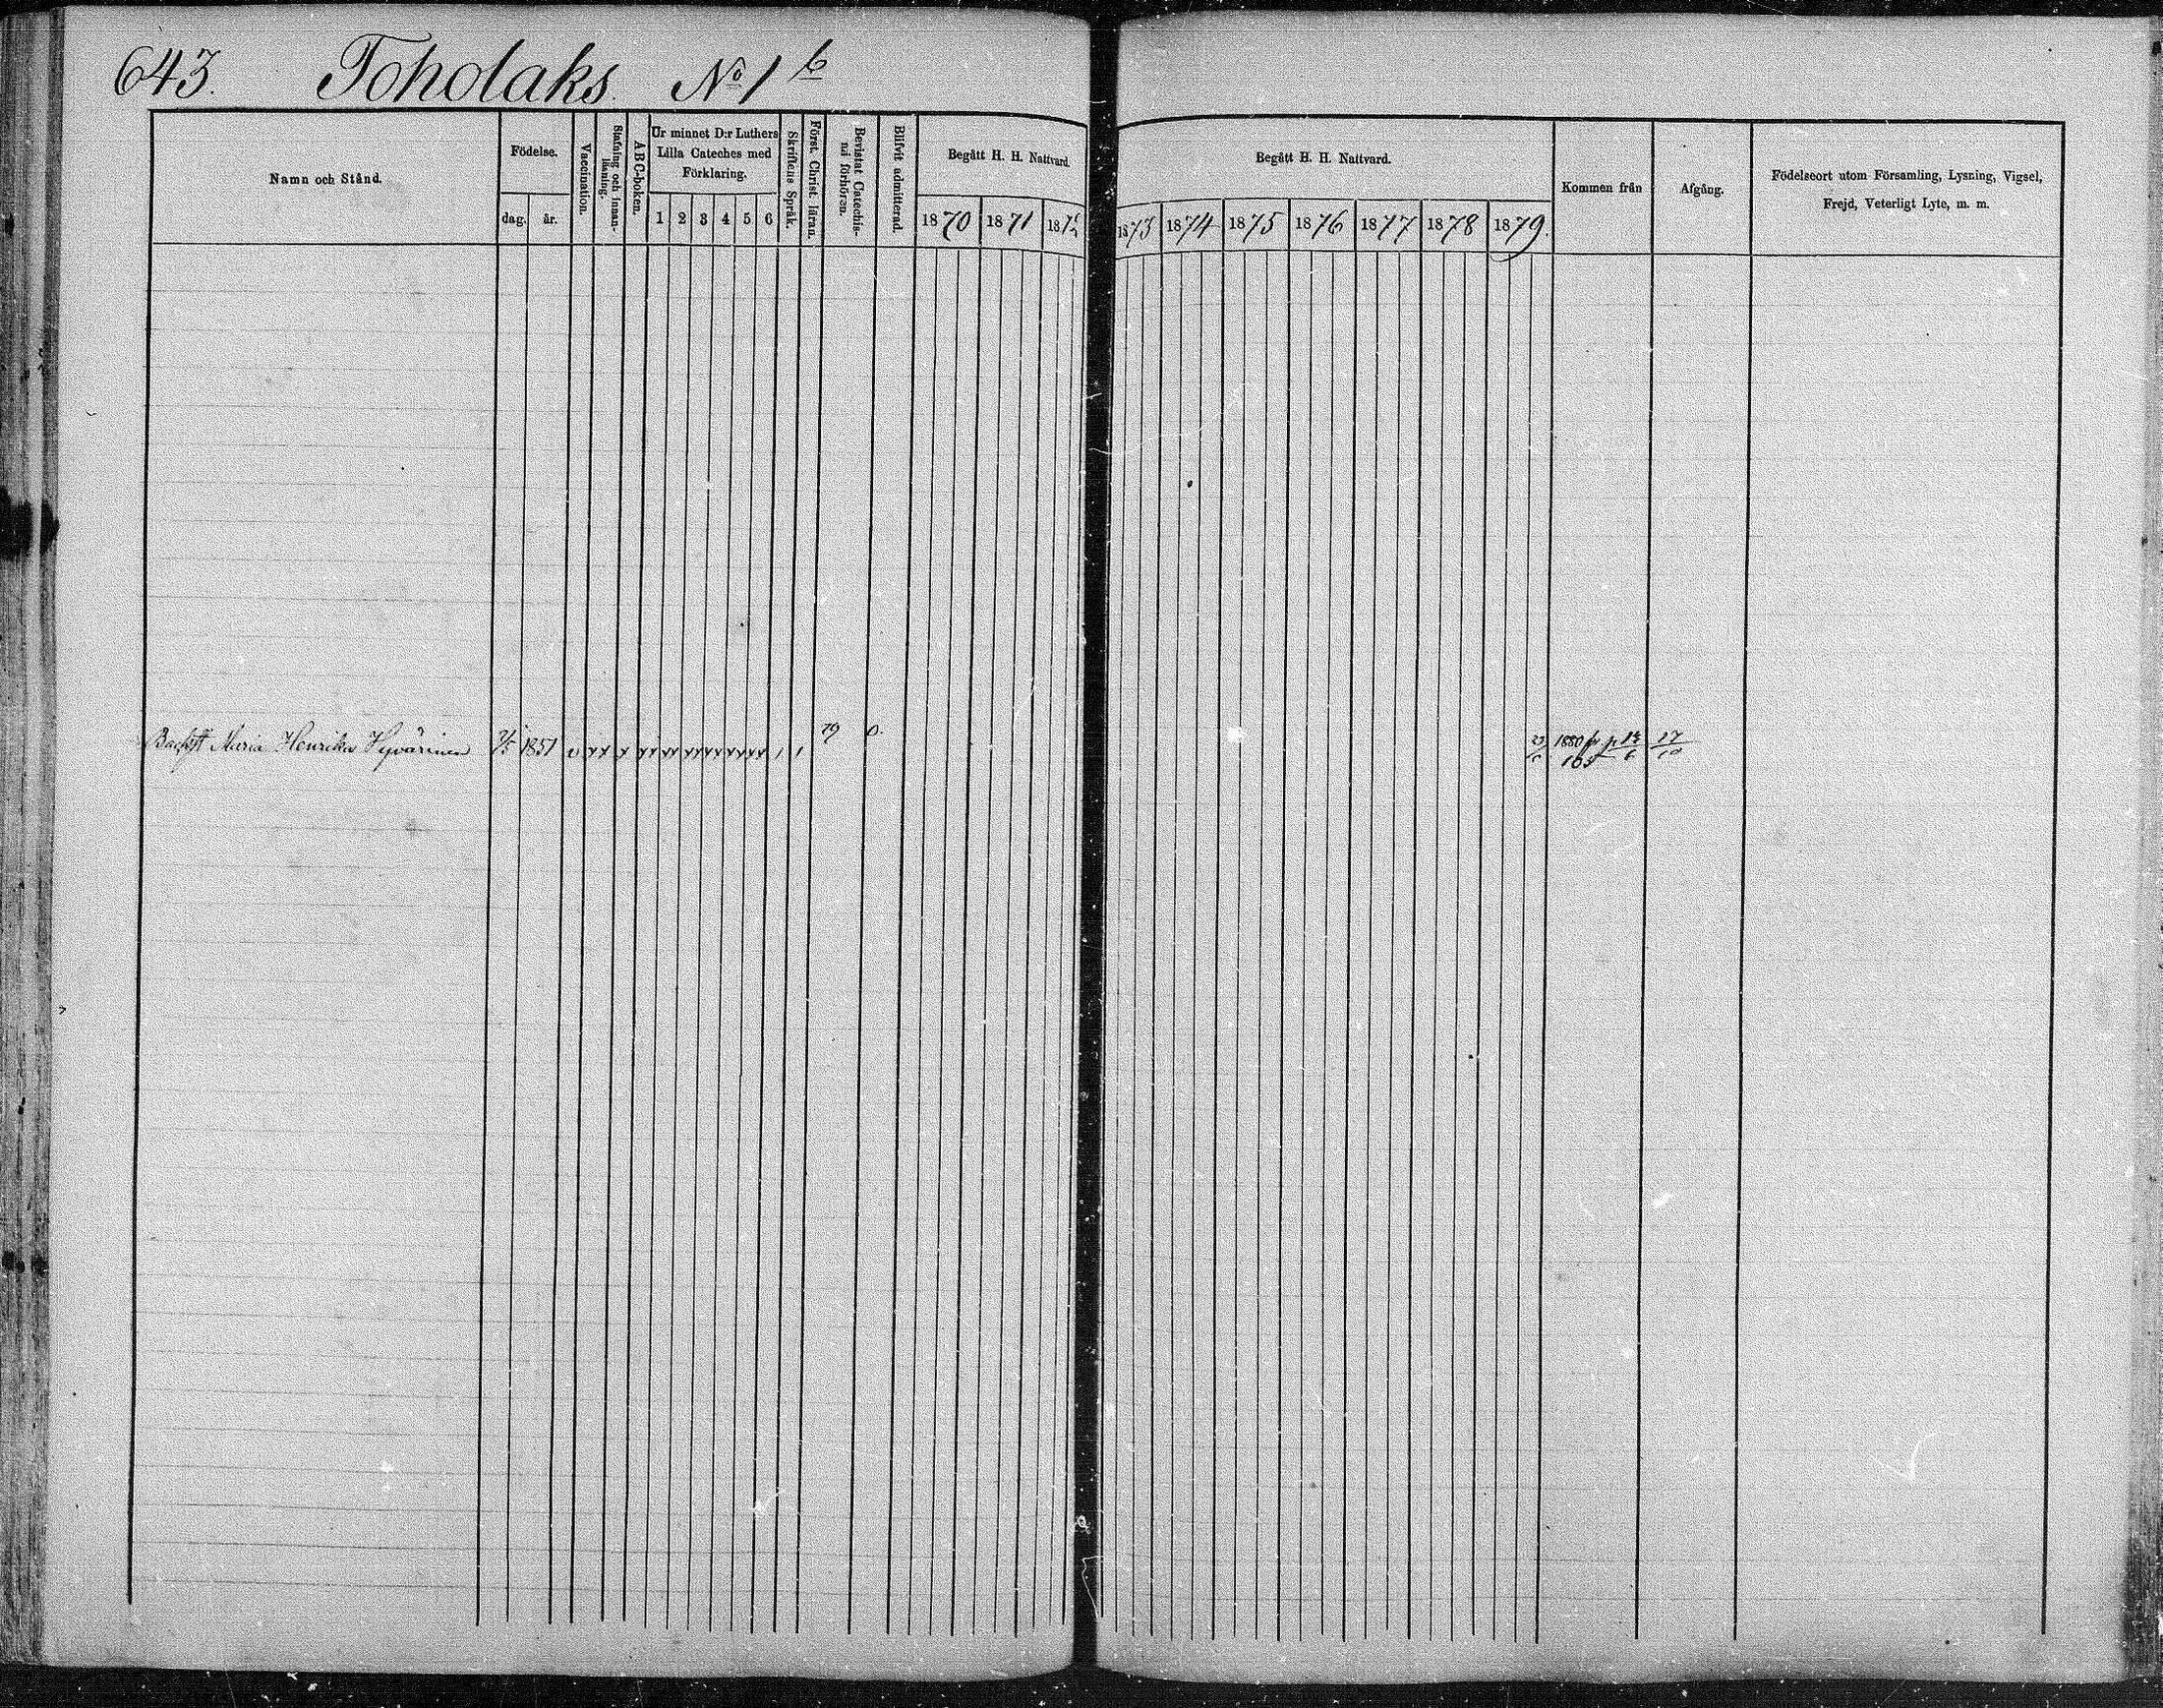 643. Toholaks. No 1 b
Namn och Stånd.
Födelse.
dag. år.
Vaccination.
Stafning och innan-
läsning.
ABC-boken.
Ur minnet D:r Luthers
Lilla Cateches med
Förklaring.
1 2 3 4 5 6
Skriftens Språk.
Först. Christ. läran.
Bevistat Catechis-
mi förhören.
Blifvit admitterad.
Begått H. H. Nattvard.
1870 1871 1872
Begått H. H. Nattvard.
1873 1874 1875 1876 1877 1878 1879.
Kommen från
Afgång.
Födelseort utom Församling, Lysning, Vigsel,
Frejd, Veterligt Lyte, m. m.
Maria Henrika Hyvärinen 1851 79 0 1880 17/10